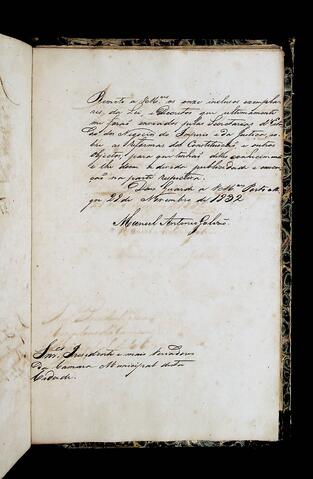 Remeto a VM.ces os onze inclusos exempla-
res, da Lei, e Decretos que ultimamente
me forão enviados pelas Secretarias d'Esta-
do dos Negocios do Imperio e da Justiça, so-
bre as Reformas da Constituição, e outros
objectos, para que tenhão delles conhecimento
e lhe dem a devida publicidade e execu-
ção na parte respectiva.
Deos Guarde a VM.ces Porto Ale-
gre 29 de Novembro de 1832
Manoel Antonio Galvão
Snr.es Presidente e mais Vereadores
da Camara Municipal desta
Cidade.